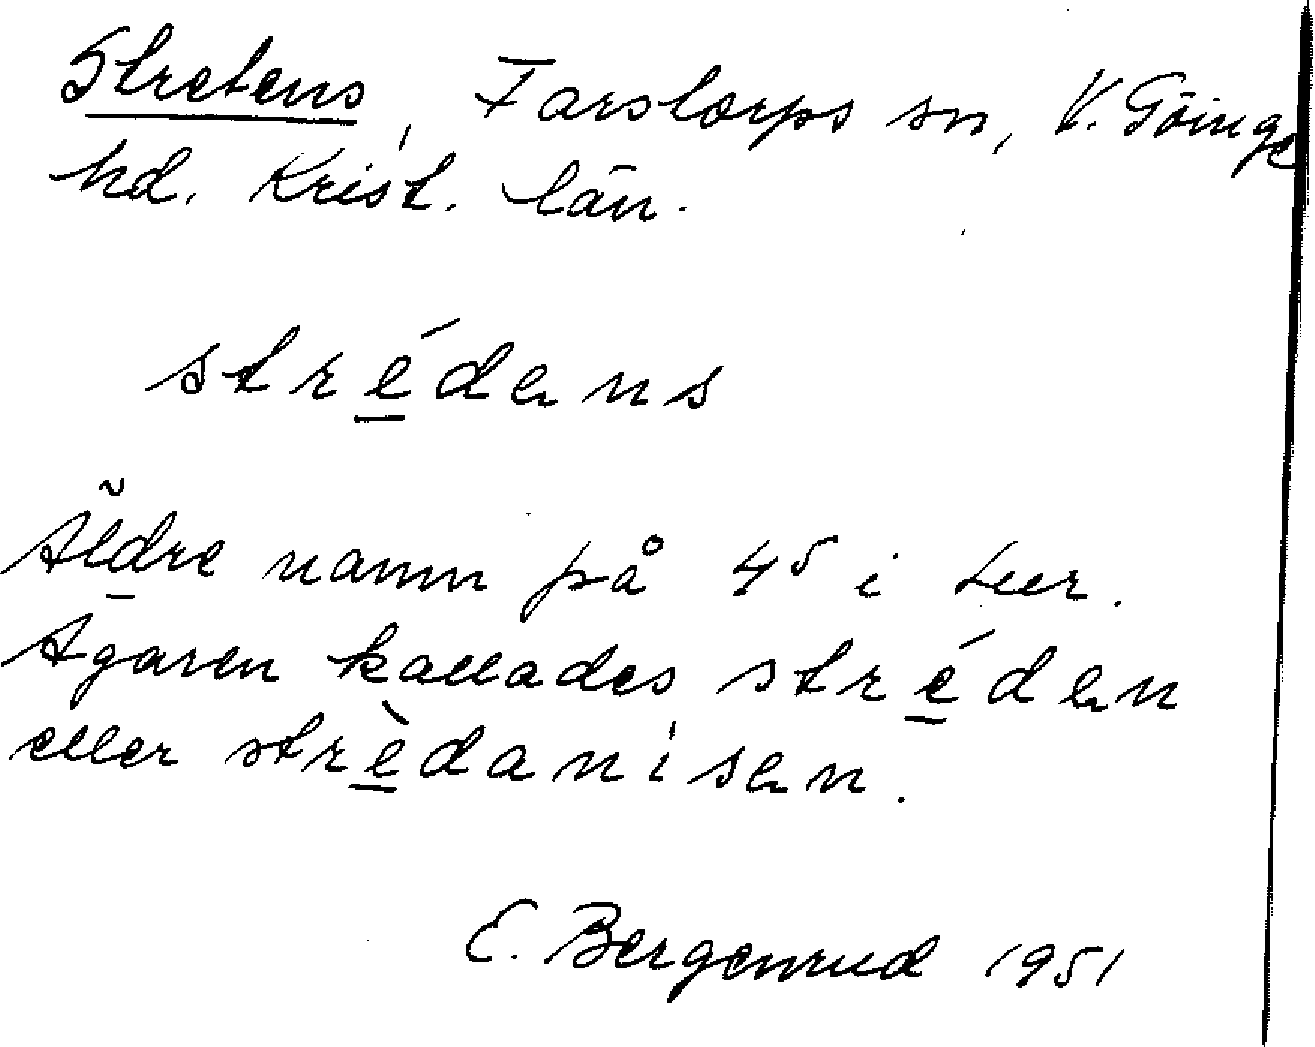 Stretens, Farstorps sn, V. Göinge
hd. Krist. län.
strédens
Äldre namn på 4⁵ i
Ägaren kallades stréden
eller strèdanisen.
E. Bergenrud 1951